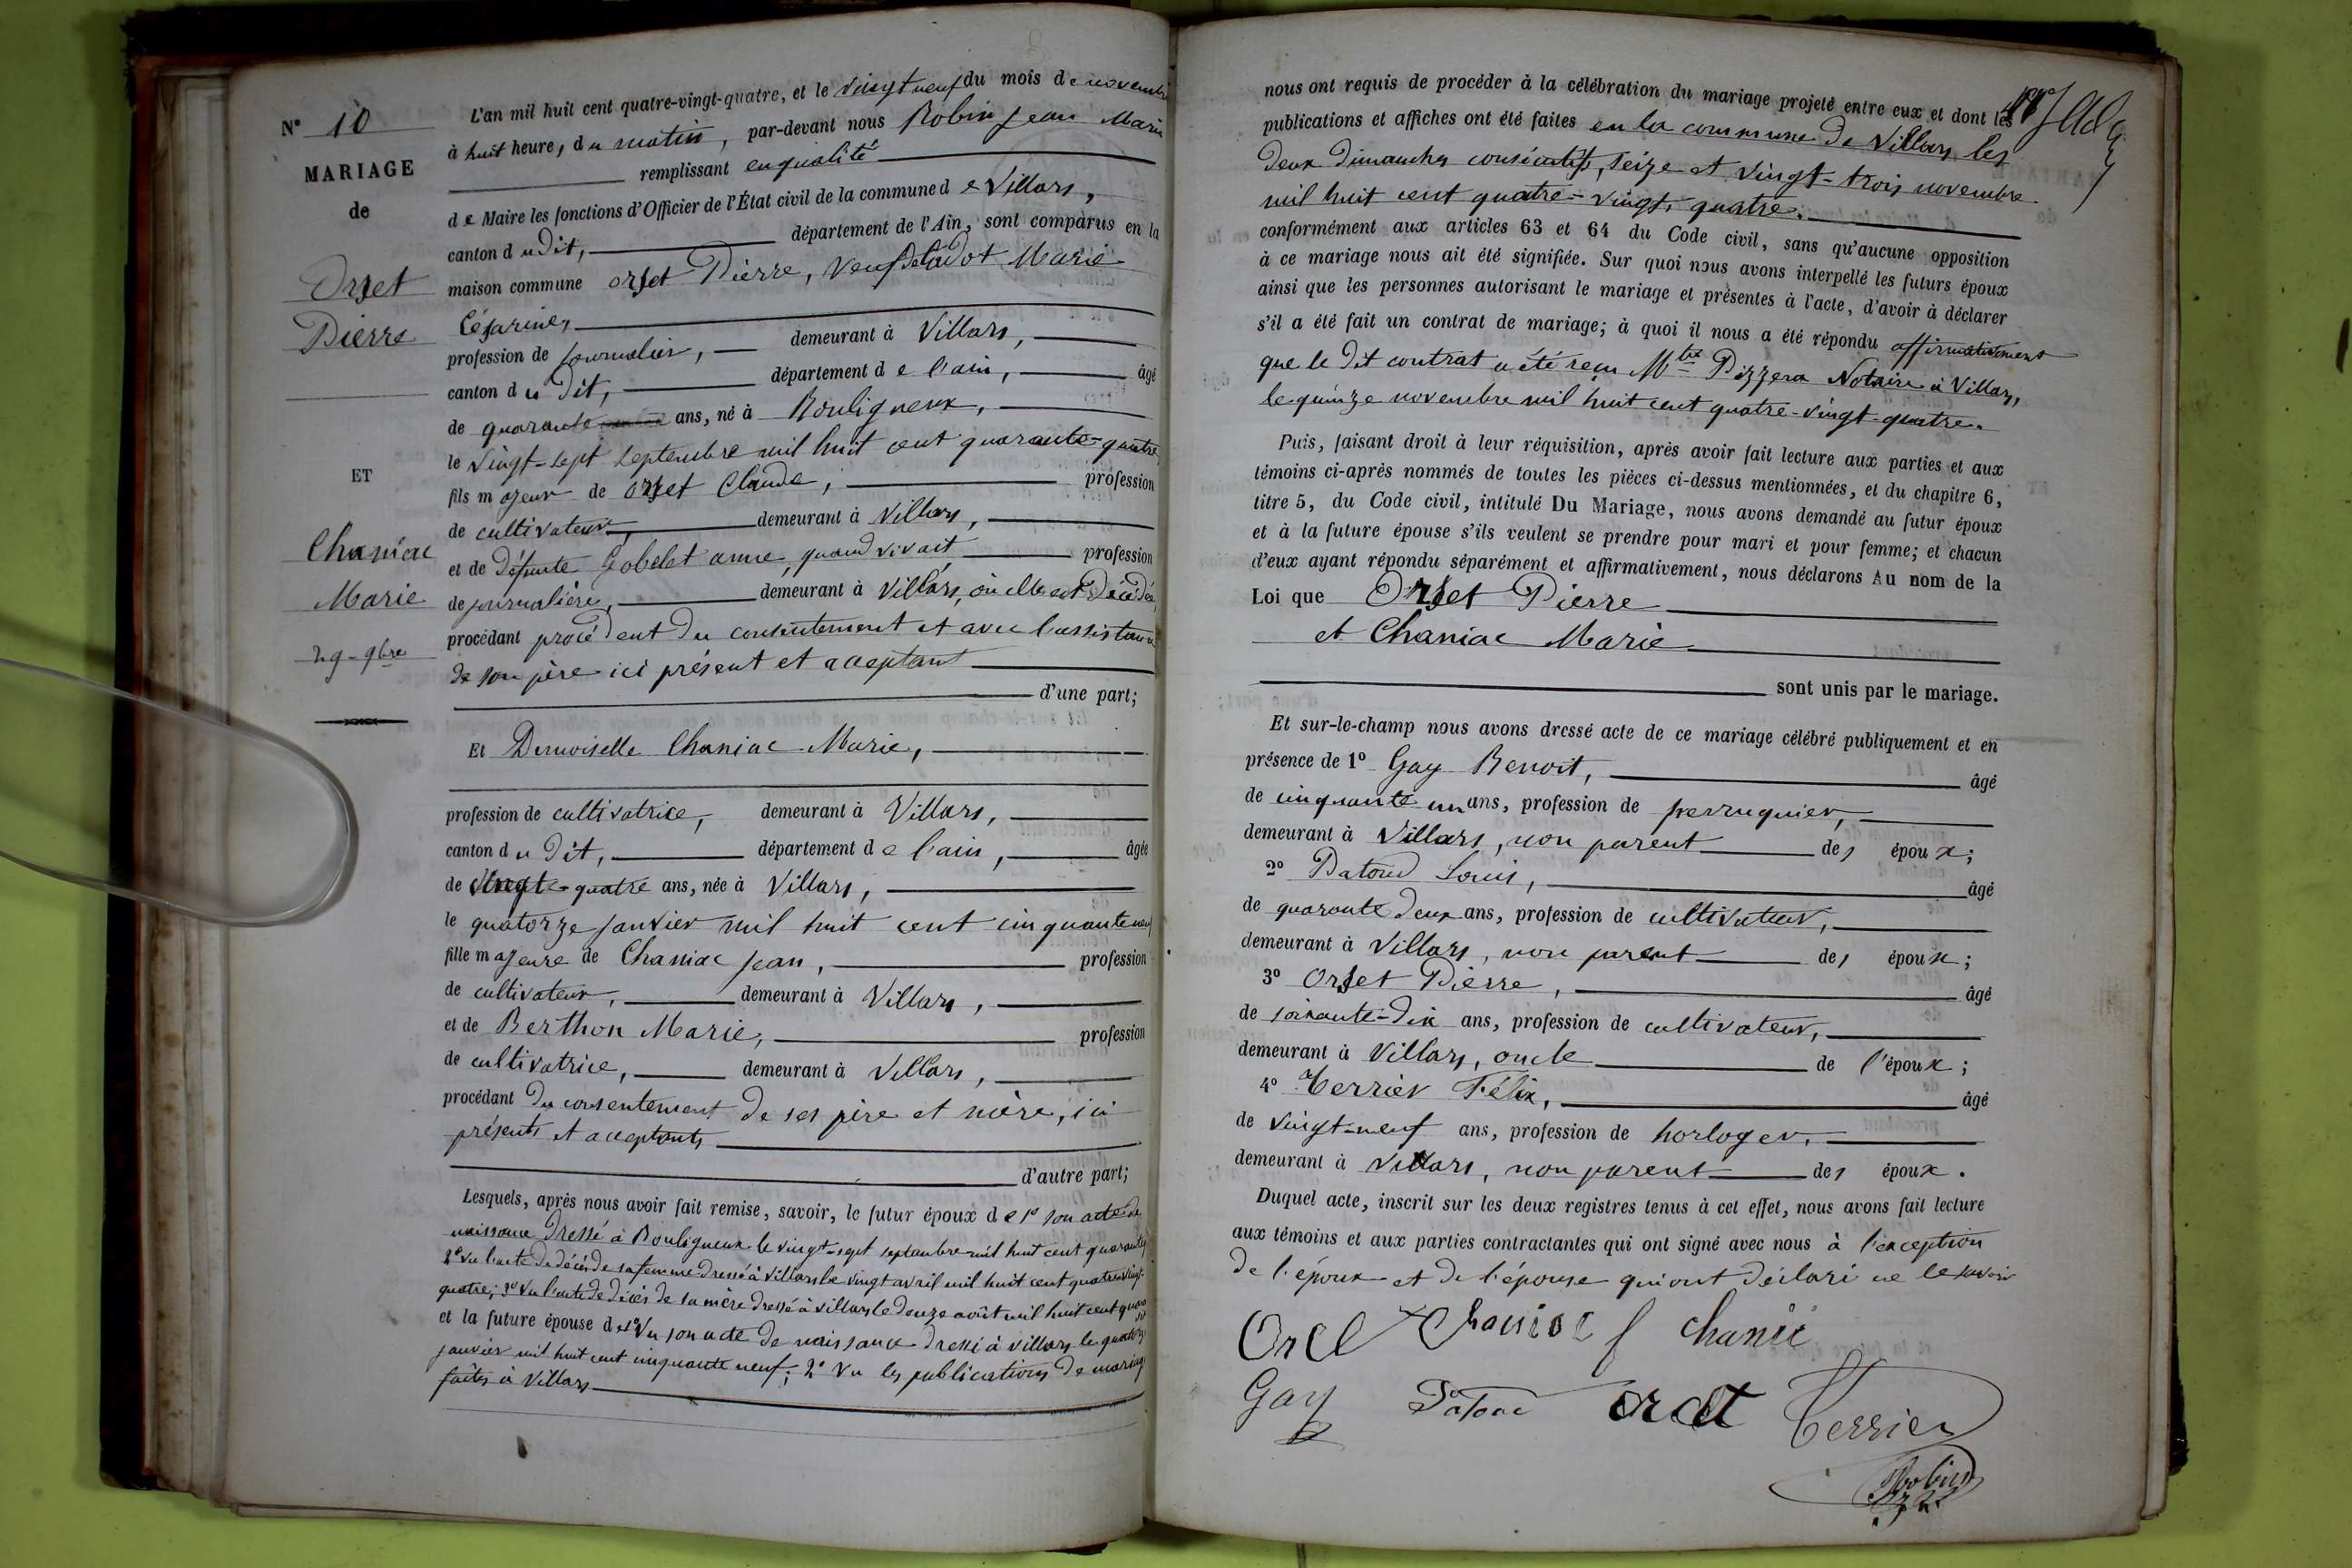 N° 10
MARIAGE
de
Orset
Pierre
ET
Chaniac
Marie
29 - 9bre
L'an mil huit cent quatre-vingt-quatre, et le vingt neuf du mois de novembre
à huit heure, du matin, par-devant nous Robin Jean Marie
remplissant en qualité
de Maire les fonctions d'Officier de l'État civil de la commune de Villars,
canton du dit, département de l'Ain, sont comparus en la
maison commune orset Pierre, veuf de Marie
Césarine,
profession de journalier, demeurant à Villars,
canton du dit, département de l'ain, âgé
de quarante ans, né à Bouligneux,
le vingt-sept septembre mil huit cent quarante-quatre
fils majeur de Orset Claude, profession
de cultivateur, demeurant à Villars,
et de défunte Gobelet anne, quand vivait profession
de journalière, demeurant à Villars, où elle est décédée,
procédant procédent du consentement et avec l'assistance
de son père ici présent et acceptant
d'une part;
Et Demoiselle Chaniac Marie,
profession de cultivatrice, demeurant à Villars,
canton du dit, département de l'ain, âgée
de vingt-quatre ans, née à Villars,
le quatorze janvier mil huit cent cinquante neuf
fille majeure de Chaniac Jean, profession
de cultivateur, demeurant à Villars,
et de Berthon Marie, profession
de cultivatrice, demeurant à Villars,
procédant du consentement de ses père et mère, ici
présents et acceptants
d'autre part;
Lesquels, après nous avoir fait remise, savoir, le futur époux de 1° son acte de
naissance dressé à Bouligneux le vingt-sept septembre mil huit cent quarante
2° vu l'acte de décès de sa femme dressé à Villars le vingt avril mil huit cent quatre vingt-
quatre; 3° vu l'acte de décès de sa mère dressé à Villars le douze août mil huit cent
et la future épouse de 1° Vu son acte de naissance dressé à Villars le quatorze
janvier mil huit cent cinquante neuf; 2° Vu les publications de mariage
faites à Villars
nous ont requis de procéder à la célébration du mariage projeté entre eux et dont les
publications et affiches ont été faites en la commune de Villars les
deux dimanches consécutifs, seize et vingt-trois novembre
mil huit cent quatre-vingt-quatre.
conformément aux articles 63 et 64 du Code civil, sans qu'aucune opposition
à ce mariage nous ait été signifiée. Sur quoi nous avons interpellé les futurs époux
ainsi que les personnes autorisant le mariage et présentes à l'acte, d'avoir à déclarer
s'il a été fait un contrat de mariage; à quoi il nous a été répondu affirmativement
que le dit contrat a été reçu Mtre Pizzera Notaire à Villars,
le quinze novembre mil huit cent quatre-vingt-quatre.
Puis, faisant droit à leur réquisition, après avoir fait lecture aux parties et aux
témoins ci-après nommés de toutes les pièces ci-dessus mentionnées, et du chapitre 6,
titre 5, du Code civil, intitulé Du Mariage, nous avons demandé au futur époux
et à la future épouse s'ils veulent se prendre pour mari et pour femme; et chacun
d'eux ayant répondu séparément et affirmativement, nous déclarons Au nom de la
Loi que Orset Pierre
et Chaniac Marie
sont unis par le mariage.
Et sur-le-champ nous avons dressé acte de ce mariage célébré publiquement et en
présence de 1° Gay Benoit, âgé
de cinquante un ans, profession de perruquier,
demeurant à Villars, non parent des époux;
2° Patoud Louis, âgé
de quarante deux ans, profession de cultivateur,
demeurant à Villars, non parent des époux;
3° Orset Pierre, âgé
de soixante-dix ans, profession de cultivateur,
demeurant à Villars, oncle de l'époux;
4° Terrier Félix, âgé
de vingt-neuf ans, profession de horloger,
demeurant à Villars, non parent des époux.
Duquel acte, inscrit sur les deux registres tenus à cet effet, nous avons fait lecture
aux témoins et aux parties contractantes qui ont signé avec nous à l'exception
de l'époux et de l'épouse qui ont déclaré ne le savoir
Gay
Terrier
Robin